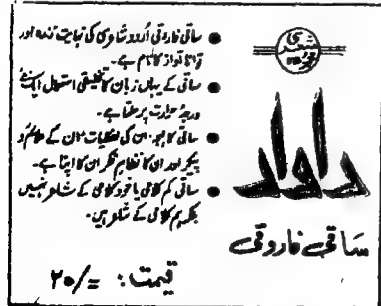 ساقی فاروقی اُردو شاعری کی نہایت زندہ اور
توانا آواز کا نام ہے۔
ساقی کے یہاں زبان کا تخلیقی استعمال ایک نئے
درجۂ حرارت پر ملتا ہے۔
ساقی کا لہجہ، ان کی لفظیات، ان کے علائم و
پیکر اور ان کا نظامِ فکر ان کا اپنا ہے۔
ساقی کم کلامی یا خود کلامی کے شاعر نہیں
بلکہ ہم کلامی کے شاعر ہیں۔
شعری
رادار
ساقی فاروقی
قیمت: =/۲۰